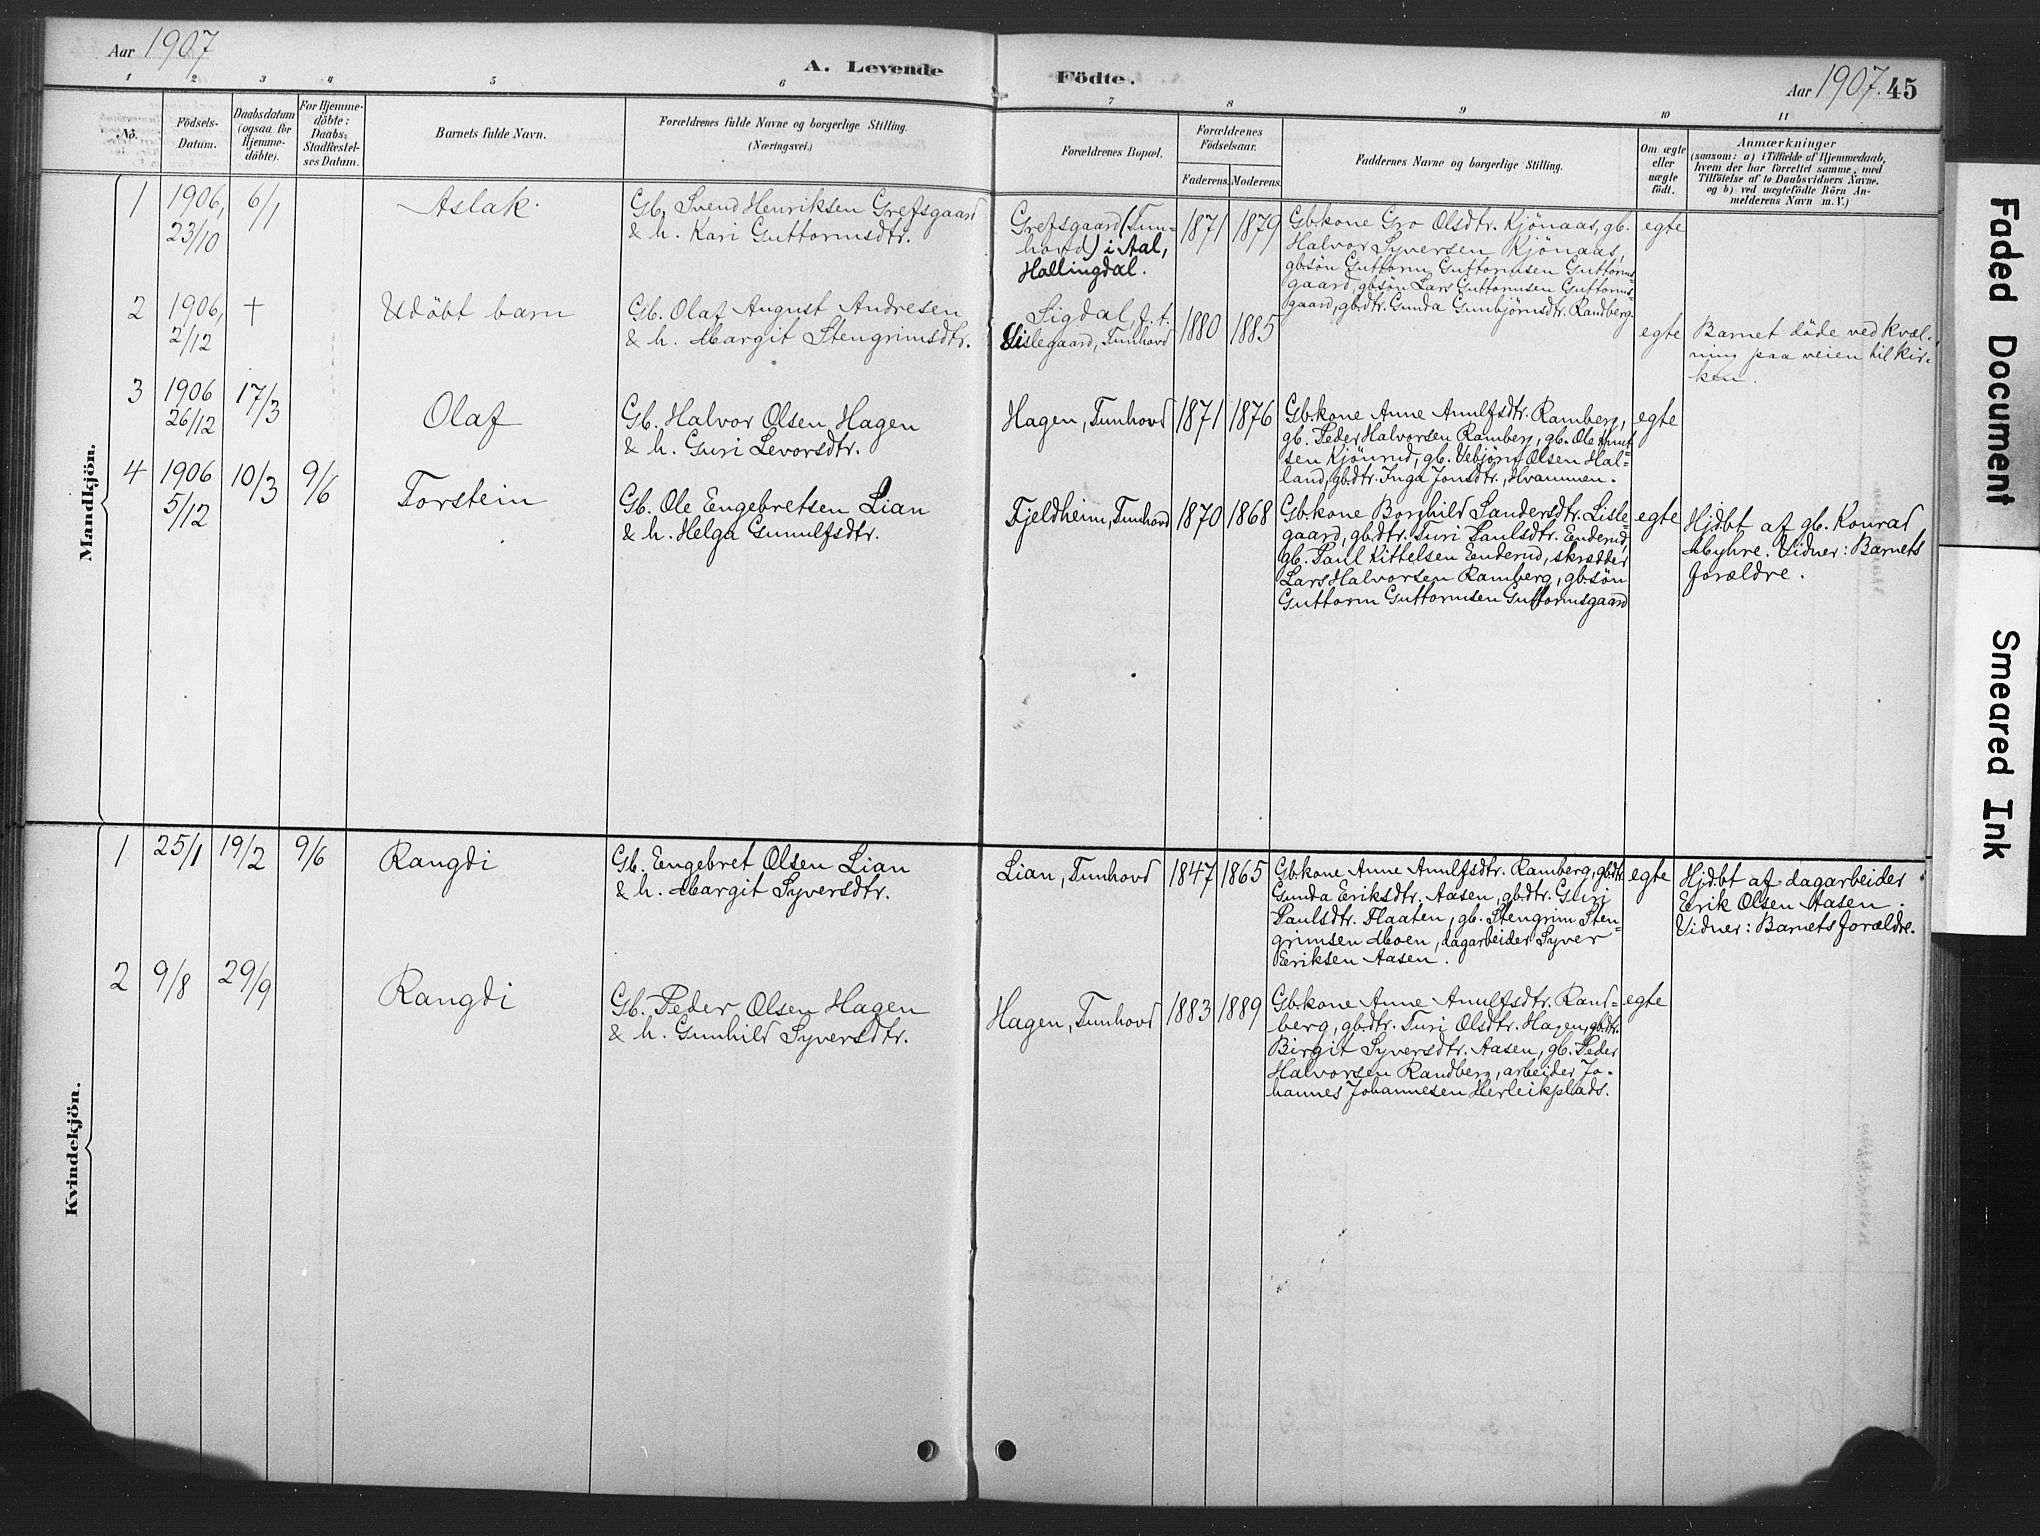 Aar 1907
A. Levende Födte.
Aar 1907. 45
1 2 3 4 5 6 7 8 9 10 11
No.
Födsels-
Datum.
Daabsdatum
(ogsaa for
Hjemme-
döbte).
For Hjemme-
döbte:
Daabs-
Stadfæstel-
ses Datum.
Barnets fulde Navn.
Forældrenes fulde Navne og borgerlige Stilling.
(Næringsvei.)
Forældrenes Bopæl.
Forældrenes
Födselsaar.
Faderens. Moderens.
Faddernes Navne og borgerlige Stilling.
Om ægte
eller
uægte
födt.
Anmærkninger
(saasom: a) i Tilfælde af Hjemmedaab,
hvem der har forrettet samme, med
Tilföielse af to Daabsvidners Navne,
og b) ved uægtefödte Börn An-
melderens Navn m. V.)
Mandkjön.
1
1906,
23/10
6/1
Aslak
Gb. Svend Henriksen Grefsgaard
& h. Kari Guttormsdtr.
Grefsgaard (Tun-
hovd) i Aal,
Hallingdal.
1871 1879
Gb.kone Gro Olsdtr. Kjönaas, gb.
Halvor Syversen Kjönaas,
gb.sön Guttorm Guttormsen Guttorms-
gaard, gb.sön Lars Guttormsen Guttorms-
gaard, gb.dtr. Gunda Gunbjörnsdtr. Randberg.
egte
2
1906,
2/12
†
Udöbt barn
Gb. Olaf August Andresen
& h. Margit Stengrimsdtr.
Sigdal, f. t.
Lislegaard, Tunhovd
1880 1885
egte
Barnet döde ved kvæl-
ning paa veien til kir-
ken.
3
1906
26/12
17/3
Olaf
Gb. Halvor Olsen Hagen
& h. Guri Levorsdtr.
Hagen, Tunhovd
1871 1876
Gb.kone Anne Arnulfsdtr. Ramberg,
gb. Peder Halvorsen Ramberg, gb. Ole Knut-
sen Kjönrud, gb. Vebjörn Olsen Hal-
land, gb.dtr. Inga Jonsdtr. Hvammen.
egte
4
1906
5/12
10/3
9/6
Torstein
Gb. Ole Engebretsen Lian
& h. Helga Gunulfsdtr.
Fjeldheim, Tunhovd
1870 1868
Gb.kone Borghild Sandersdtr. Lisle-
gaard, gb.dtr. Turi Paulsdtr. Enderud,
gb. Paul Kittelsen Enderud, skrædder
Lars Halvorsen Ramberg, gb.sön
Guttorm Guttormsen Guttormsgaard
egte
Hjdbt af gb. Konrad
Myhre. Vidner: Barnets
forældre.
Kvindekjön.
1
25/1
19/2
9/6
Rangdi
Gb. Engebret Olsen Lian
& h. Margit Syversdtr.
Lian, Tunhovd
1847 1865
Gb.kone Anne Arnulfsdtr. Ramberg, gb.dtr.
Gunda Eriksdtr. Aasen, gb.dtr. Guri
Paulsdtr. Flaaten, gb. Stengrim Sten-
grimsen Moen, dagarbeider Syver
Eriksen Aasen.
egte
Hjdbt af dagarbeider
Erik Olsen Aasen.
Vidner: Barnets forældre.
2
9/8
29/9
Rangdi
Gb. Peder Olsen Hagen
& h. Gunhild Syversdtr.
Hagen, Tunhovd
1883 1889
Gb.kone Anne Arnulfsdtr. Rand-
berg, gb.dtr. Turi Olsdtr. Hagen, gb.dtr.
Birgit Syversdtr. Aasen, gb. Peder
Halvorsen Randberg, arbeider Jo-
hannes Johannesen Herleikplads.
egte
Faded Document
Smeared Ink